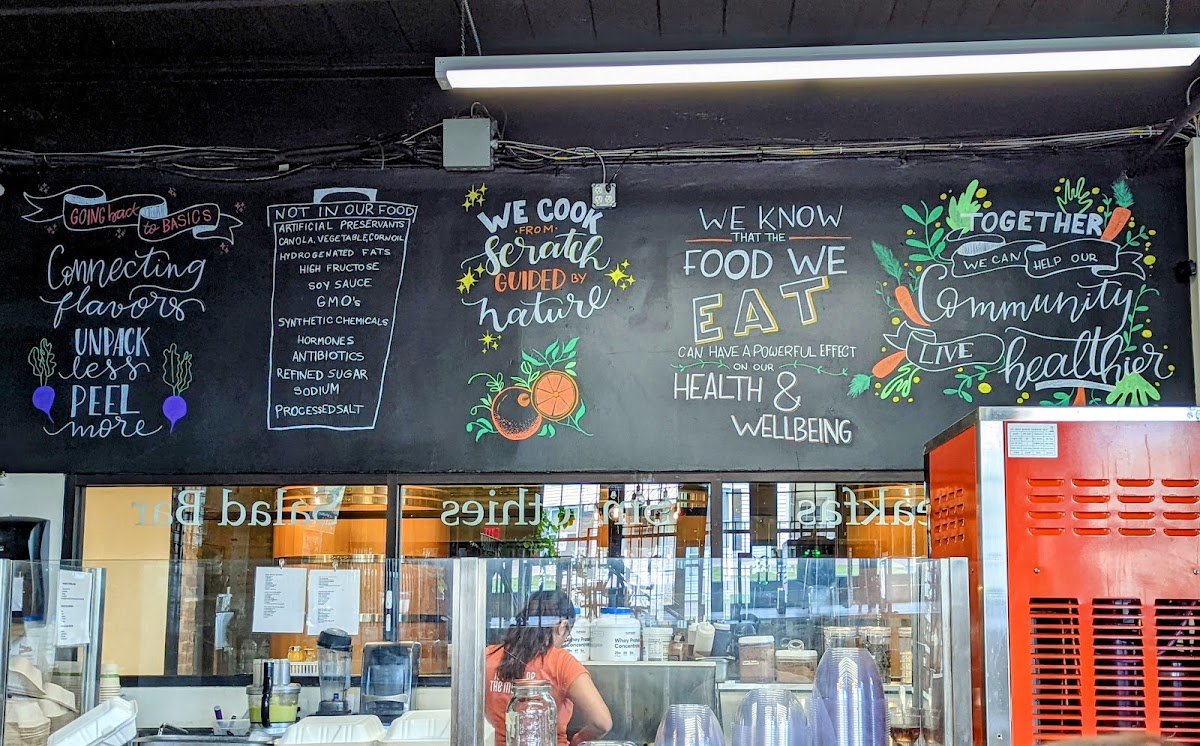 GOING back to BASICS
Connecting
flavors
UNPACK
less
PEEL
more
NOT IN OUR FOOD
ARTIFICIAL PRESERVANTS
CANOLA, VEGETABLE, CORN OIL
HYDROGENATED FATS
HIGH FRUCTOSE
SOY SAUCE
GMO's
SYNTHETIC CHEMICALS
HORMONES
ANTIBIOTICS
REFINED SUGAR
SODIUM
PROCESSED SALT
WE COOK
FROM
Scratch
GUIDED BY
nature
WE KNOW
THAT THE
FOOD WE
EAT
CAN HAVE A POWERFUL EFFECT
ON OUR
HEALTH &
WELLBEING
TOGETHER
WE CAN HELP OUR
Community
LIVE healthier
Salad Bar
Smoothies
Whey Protein
Concentrate